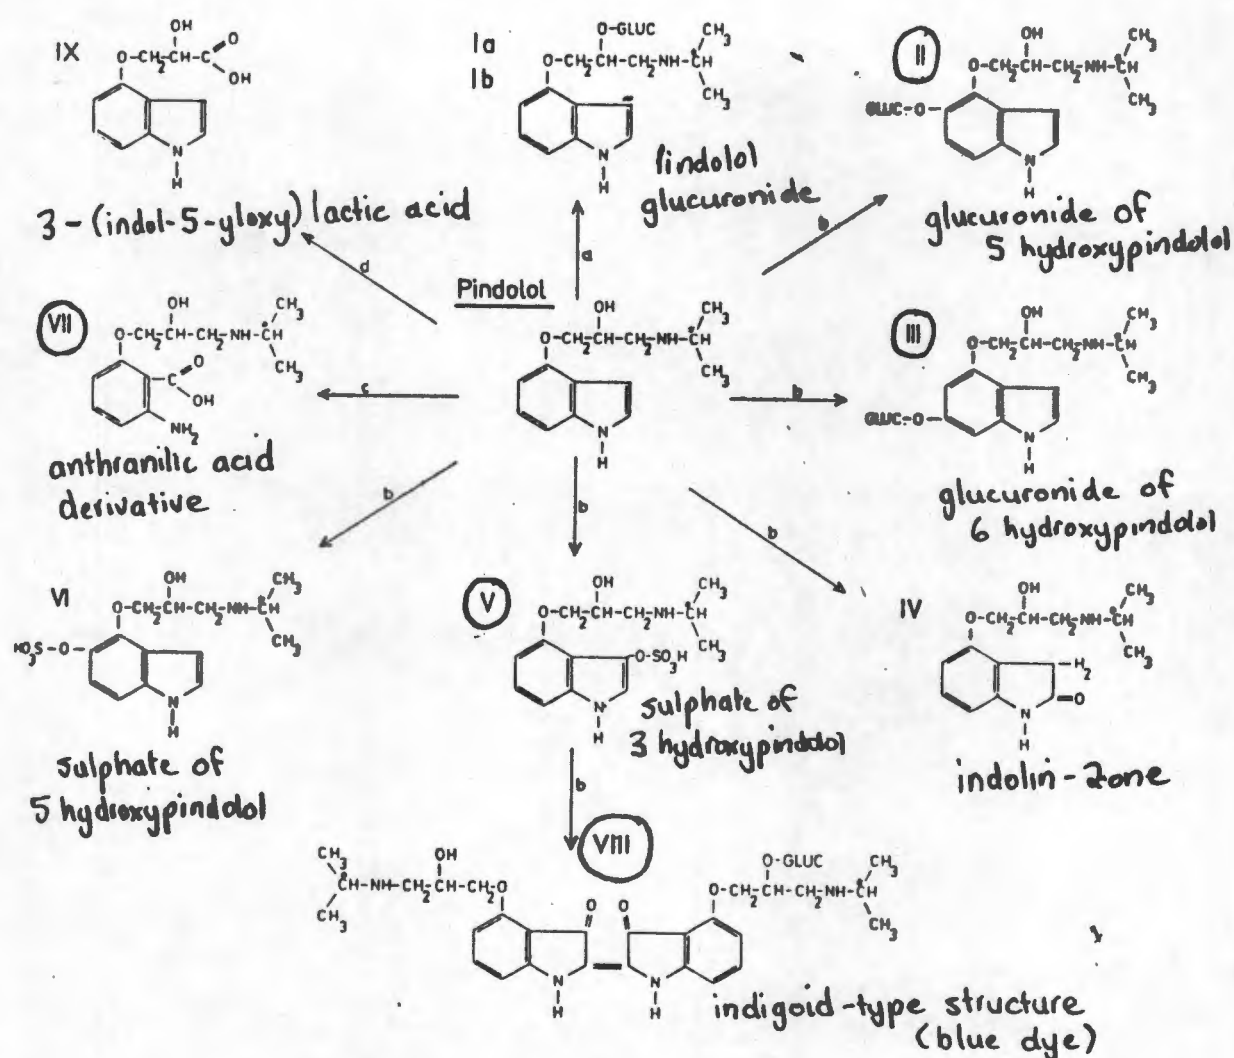 IX
OH
O-CH2-CH-C
O
OH
N
H
3-(indol-5-yloxy) lactic acid
Ia
Ib
O-GLUC
O-CH2-CH-CH2-NH-CH
CH3
CH3
N
H
Pindolol
glucuronide
II
OH
O-CH2-CH-CH2-NH-CH
CH3
CH3
GLUC-O
N
H
glucuronide of
5 hydroxypindolol
a
b
d
Pindolol
OH
O-CH2-CH-CH2-NH-CH
CH3
CH3
N
H
VII
OH
O-CH2-CH-CH2-NH-CH
CH3
CH3
C
O
OH
NH2
anthranilic acid
derivative
c
b
III
OH
O-CH2-CH-CH2-NH-CH
CH3
CH3
GLUC-O
N
H
glucuronide of
6 hydroxypindolol
b
b
b
VI
OH
O-CH2-CH-CH2-NH-CH
CH3
CH3
HO3S-O
N
H
sulphate of
5 hydroxypindolol
V
OH
O-CH2-CH-CH2-NH-CH
CH3
CH3
O-SO3H
N
H
sulphate of
3 hydroxypindolol
IV
OH
O-CH2-CH-CH2-NH-CH
CH3
CH3
H2
O
N
H
indolin-2one
b
VIII
CH3
CH-NH-CH2-CH-CH2-O
CH3
OH
O
O
O-GLUC
O-CH2-CH-CH2-NH-CH
CH3
CH3
N
H
N
H
indigoid-type structure
(blue dye)